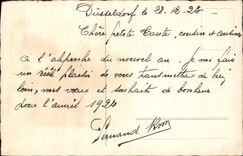 Düsseldorf le 28-12-23
Chère petite Tante, cousin et cousines
A l'approche du nouvel an, je me fais
un réél plaisir de vous transmettre de
mes vœux et souhaits de bonheur
pour l'année 1924
Fernand